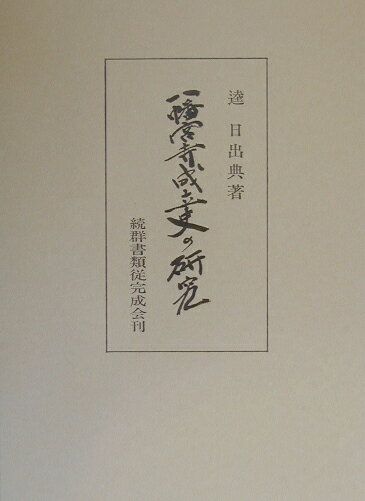 逵日出典著
八幡宮寺成立史の研究
続群書類従完成会刊